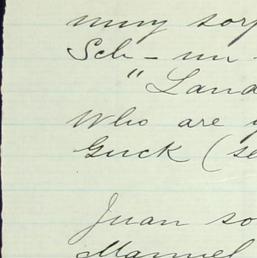 muy sorp
Sch - un -
" Land
Who are y
Guck (se
Juan so
Manuel